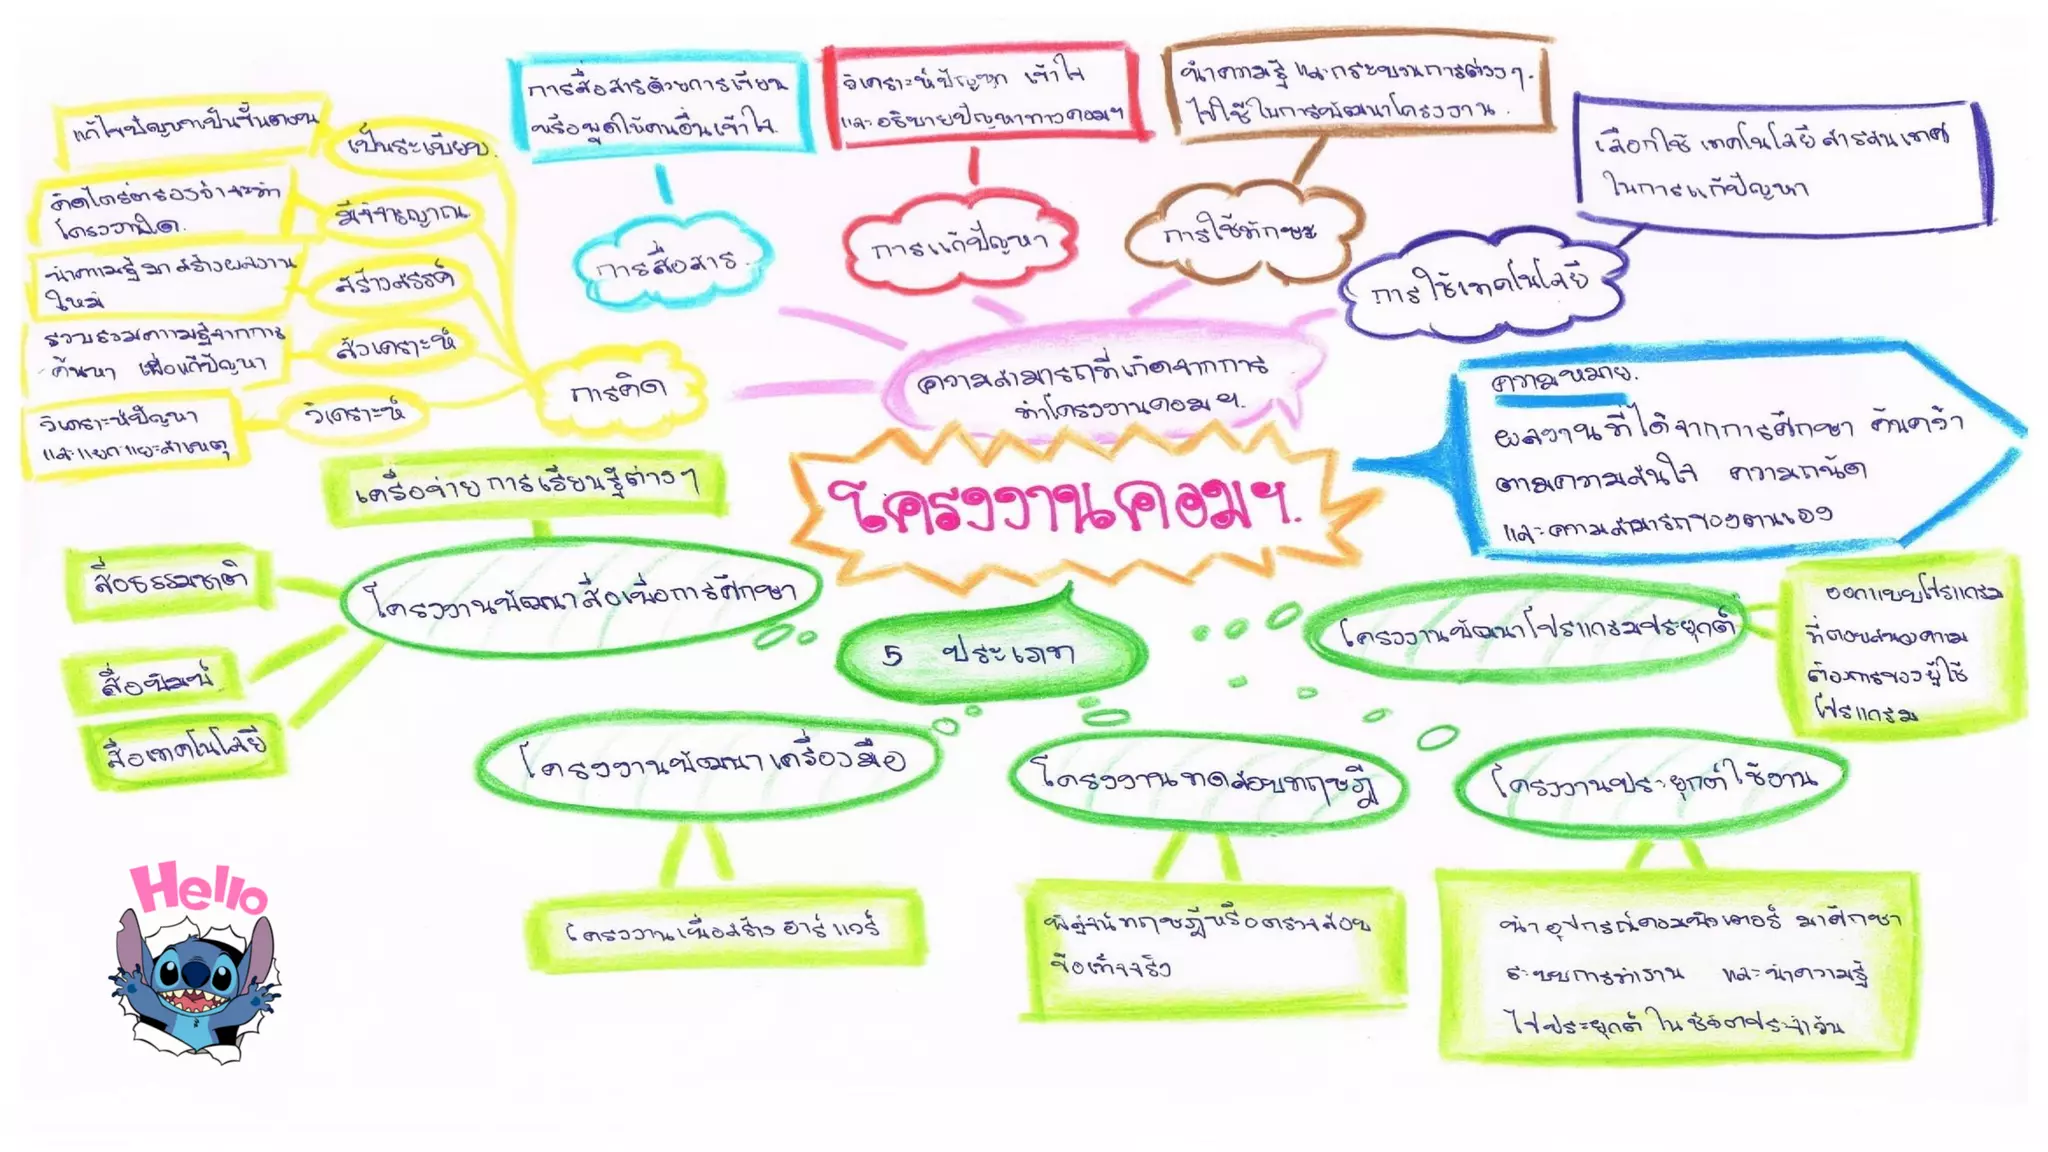 การสื่อสารด้วยการเขียน
หรือพูดให้คนอื่นเข้าใจ.
การสื่อสาร.
วิเคราะห์ปัญหา เข้าใจ
และอธิบายปัญหาทางคอมฯ
การแก้ปัญหา
นำความรู้ และกระบวนการต่างๆ.
ไปใช้ในการพัฒนาโครงงาน.
การใช้ทักษะ
เลือกใช้ เทคโนโลยีสารสนเทศ
ในการแก้ปัญหา
การใช้เทคโนโลยี
แก้ไขปัญหาเป็นขั้นตอน
เป็นระเบียบ.
คิดไตร่ตรองว่าจะทำ
โครงงานใด.
มีวิจารญาณ
นำความรู้มาสร้างผลงาน
ใหม่
สร้างสรรค์
รวบรวมความรู้จากการ
ค้นหา เพื่อแก้ปัญหา
สังเคราะห์
วิเคราะห์ปัญหา
และแยกแยะสาเหตุ
วิเคราะห์
การคิด
ความสามารถที่เกิดจากการ
ทำโครงงานคอมฯ.
โครงงานคอมฯ.
ความหมาย.
ผลงานที่ได้จากการศึกษา ค้นคว้า
ตามความสนใจ ความถนัด
และความสามารถของตนเอง
เครือข่ายการเรียนรู้ต่างๆ
สื่อธรรมชาติ
สื่อพิมพ์
สื่อเทคโนโลยี
โครงงานพัฒนาสื่อเพื่อการศึกษา
5 ประเภท
โครงงานพัฒนาโปรแกรมประยุกต์
ออกแบบโปรแกรม
ที่ตอบสนองความ
ต้องการของผู้ใช้
โปรแกรม
โครงงานพัฒนาเครื่องมือ
โครงงานเพื่อสร้างฮาร์แวร์
โครงงานทดสอบทฤษฎี
พิสูจน์ทฤษฎีหรือตรวจสอบ
ข้อเท็จจริง
โครงงานประยุกต์ใช้งาน
นำอุปกรณ์คอมพิวเตอร์ มาศึกษา
ระบบการทำงาน และนำความรู้
ไปประยุกต์ในชีวิตประจำวัน
Hello